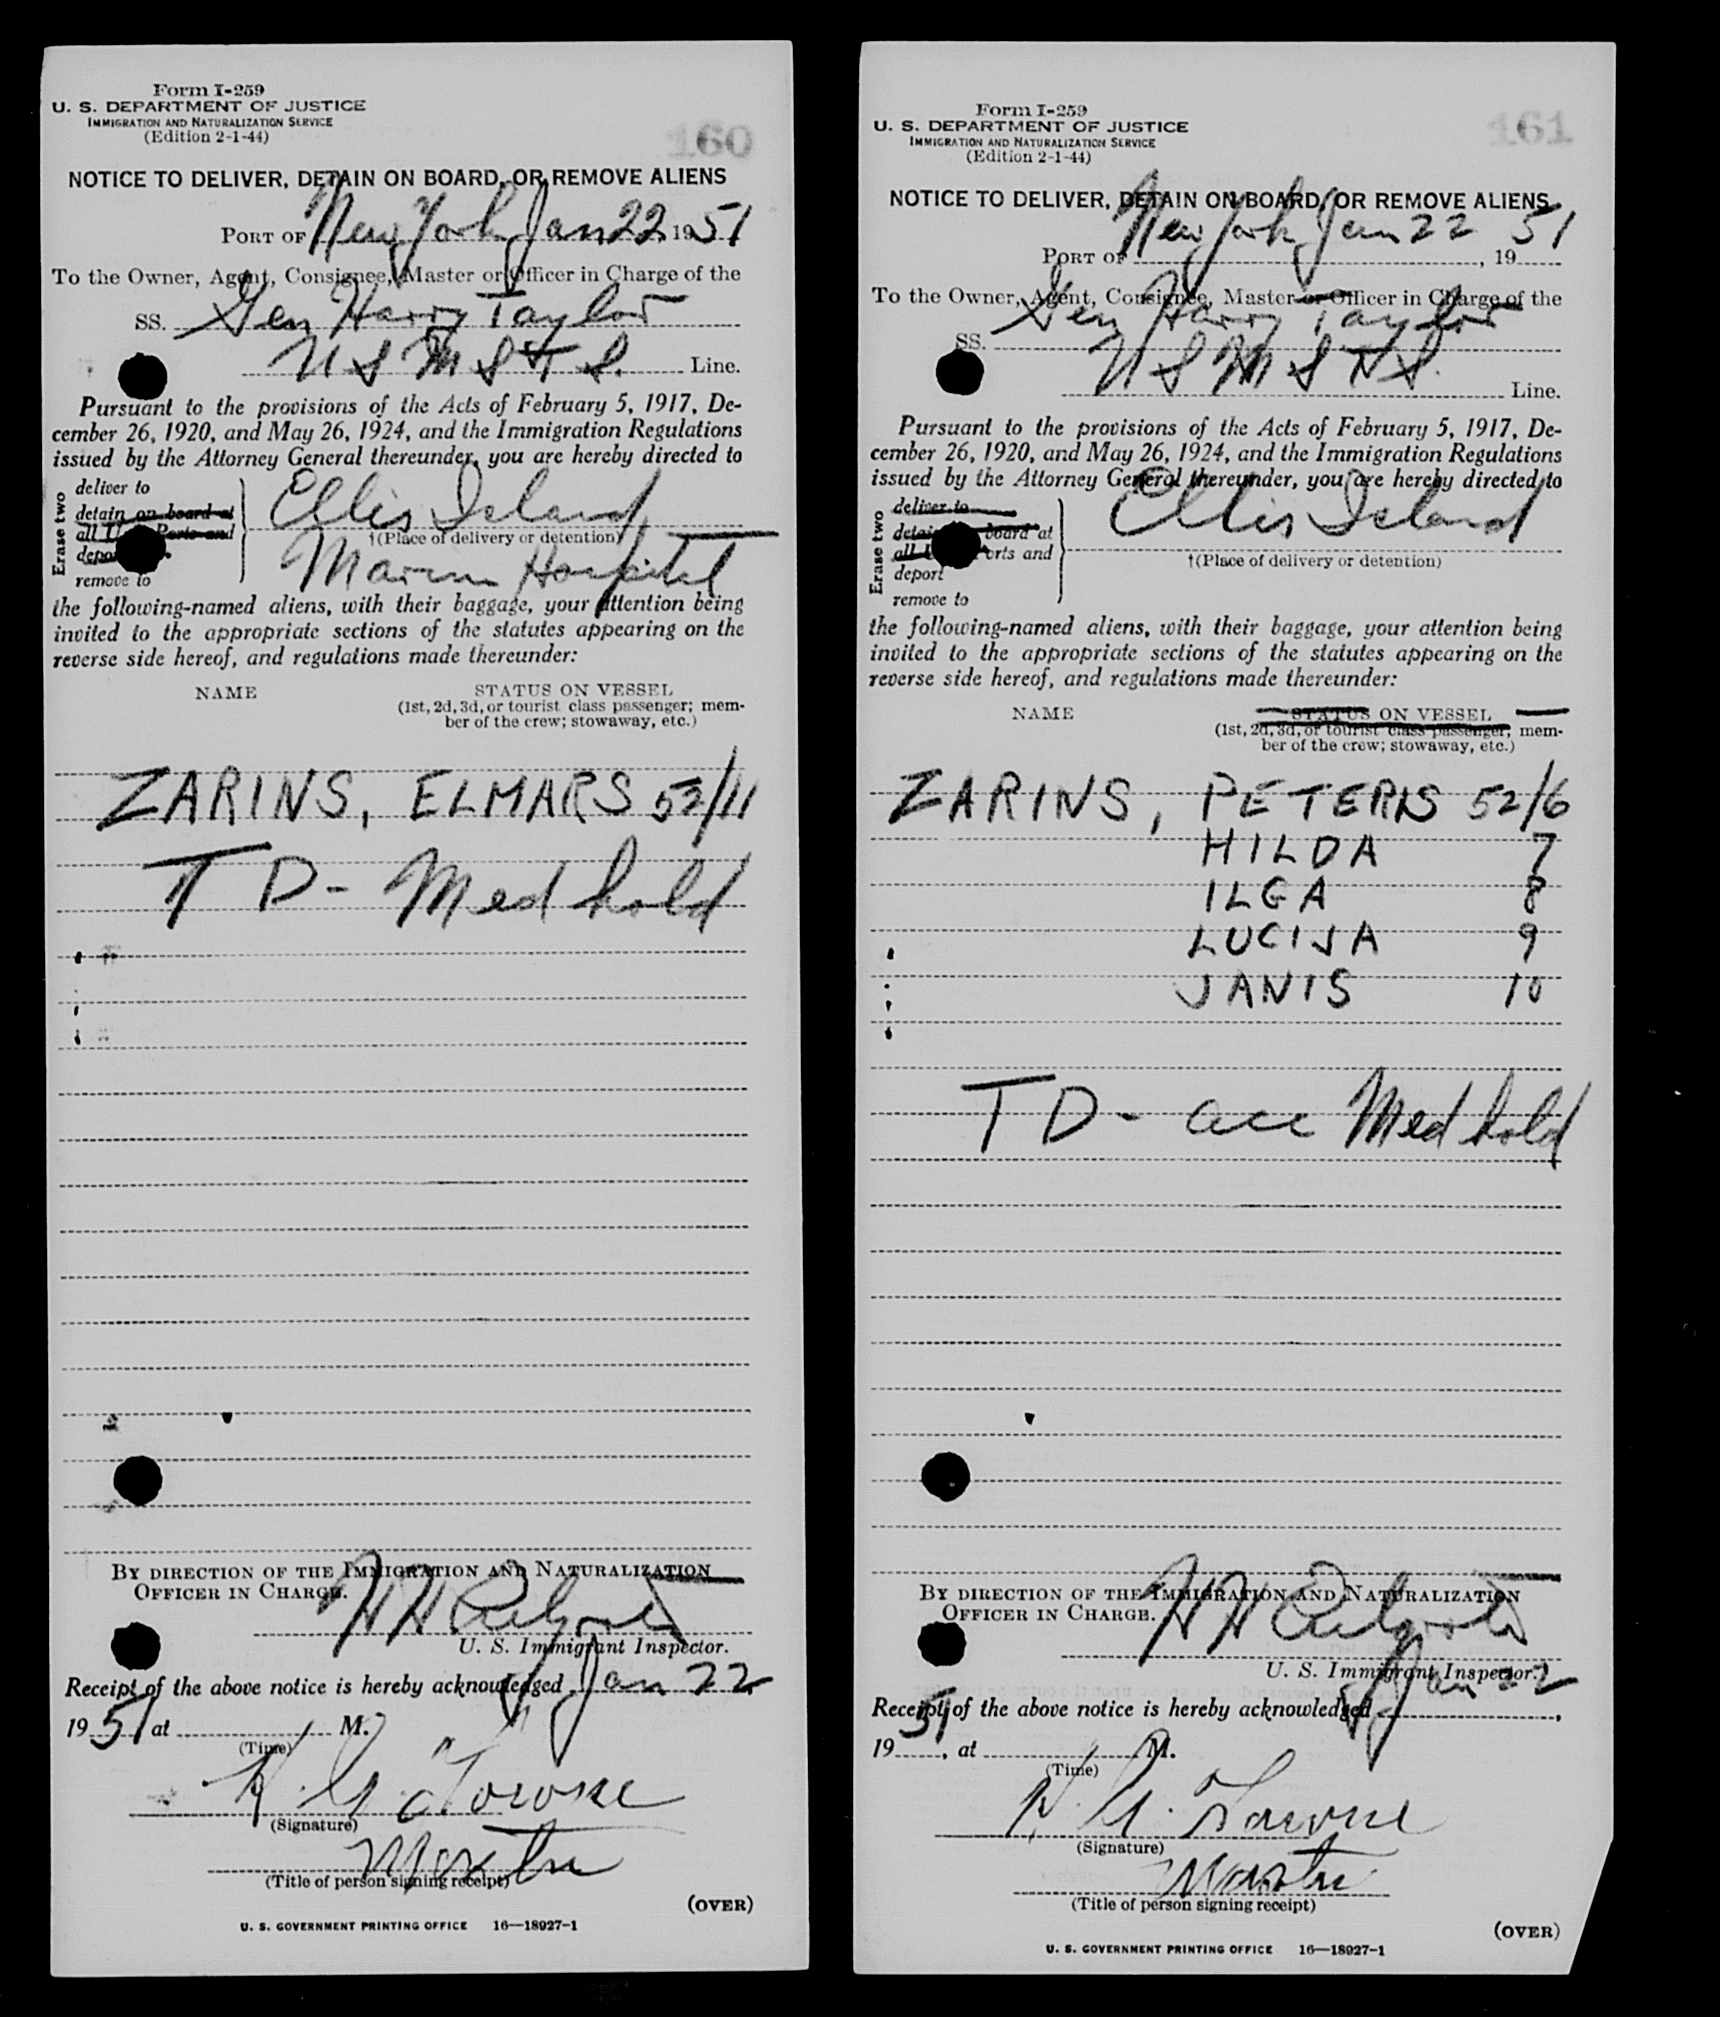 Form I-259
U. S. DEPARTMENT OF JUSTICE
IMMIGRATION AND NATURALIZATION SERVICE
(Edition 2-1-44)
160
NOTICE TO DELIVER, DETAIN ON BOARD, OR REMOVE ALIENS
PORT OF New York Jan 22, 1951
To the Owner, Agent, Consignee, Master or Officer in Charge of the
SS. Gen Harry Taylor
U S M S T S. Line.
Pursuant to the provisions of the Acts of February 5, 1917, De-
cember 26, 1920, and May 26, 1924, and the Immigration Regulations
issued by the Attorney General thereunder, you are hereby directed to
Erase two
deliver to
detain on board at
all U. Ports and
remove to
Ellis Island
†(Place of delivery or detention)
Marine Hospital
the following-named aliens, with their baggage, your attention being
invited to the appropriate sections of the statutes appearing on the
reverse side hereof, and regulations made thereunder:
NAME STATUS ON VESSEL
(1st, 2d, 3d, or tourist class passenger; mem-
ber of the crew; stowaway, etc.)
ZARINS, ELMARS 52/11
T D - Med hold
BY DIRECTION OF THE IMMIGRATION AND NATURALIZATION
OFFICER IN CHARGE.
H H
U. S. Immigrant Inspector.
Receipt of the above notice is hereby acknowledged Jan 22
1951 at M.
(Time)
K. G. Towne
(Signature)
Master
(Title of person signing receipt)
(OVER)
U. S. GOVERNMENT PRINTING OFFICE 16—18927-1
Form I-259
U. S. DEPARTMENT OF JUSTICE
IMMIGRATION AND NATURALIZATION SERVICE
(Edition 2-1-44)
161
NOTICE TO DELIVER, DETAIN ON BOARD, OR REMOVE ALIENS
PORT OF New York Jan 22, 19 51
To the Owner, Agent, Consignee, Master or Officer in Charge of the
SS. Gen Harry Taylor
U S M S T S. Line.
Pursuant to the provisions of the Acts of February 5, 1917, De-
cember 26, 1920, and May 26, 1924, and the Immigration Regulations
issued by the Attorney General thereunder, you are hereby directed to
Erase two
deliver to
board at
all and
deport
remove to
Ellis Island
†(Place of delivery or detention)
the following-named aliens, with their baggage, your attention being
invited to the appropriate sections of the statutes appearing on the
reverse side hereof, and regulations made thereunder:
NAME STATUS ON VESSEL
(1st, 2d, 3d, or tourist class passenger; mem-
ber of the crew; stowaway, etc.)
ZARINS, PETERIS 52/6
HILDA 7
ILGA 8
LUCIJA 9
JANIS 10
T D - acc Med hold
BY DIRECTION OF THE IMMIGRATION AND NATURALIZATION
OFFICER IN CHARGE.
H H
U. S. Immigrant Inspector.
Receipt of the above notice is hereby acknowledged Jan 22,
1951, at M.
(Time)
K. G. Towne
(Signature)
Master
(Title of person signing receipt)
(OVER)
U. S. GOVERNMENT PRINTING OFFICE 16—18927-1